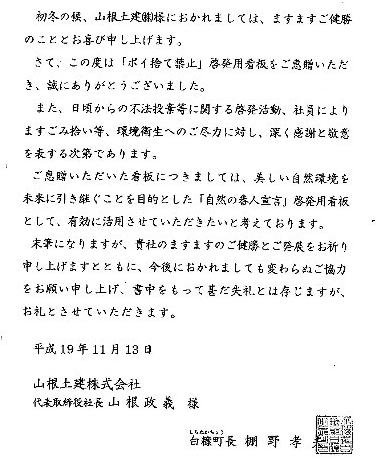 初冬の候、山根土建㈱様におかれましては、ますますご健勝
のこととお喜び申し上げます。
さて、この度は「ポイ捨て禁止」啓発用看板をご恵贈いただ
き、誠にありがとうございました。
また、日頃からの不法投棄等に関する啓発活動、社員により
ますごみ拾い等、環境衛生へのご尽力に対し、深く感謝と敬意
を表する次第であります。
ご恵贈いただいた看板につきましては、美しい自然環境を
未来に引き継ぐことを目的とした「自然の番人宣言」啓発用看板
として、有効に活用させていただきたいと考えております。
末筆になりますが、貴社のますますのご健勝とご発展をお祈り
申し上げますとともに、今後におかれましても変わらぬご協力
をお願い申し上げ、書中をもって甚だ失礼とは存じますが、
お礼とさせていただきます。
平成19年11月13日
山根土建株式会社
代表取締役社長 山根政義 様
しらぬかちょう
白糠町長 棚野孝